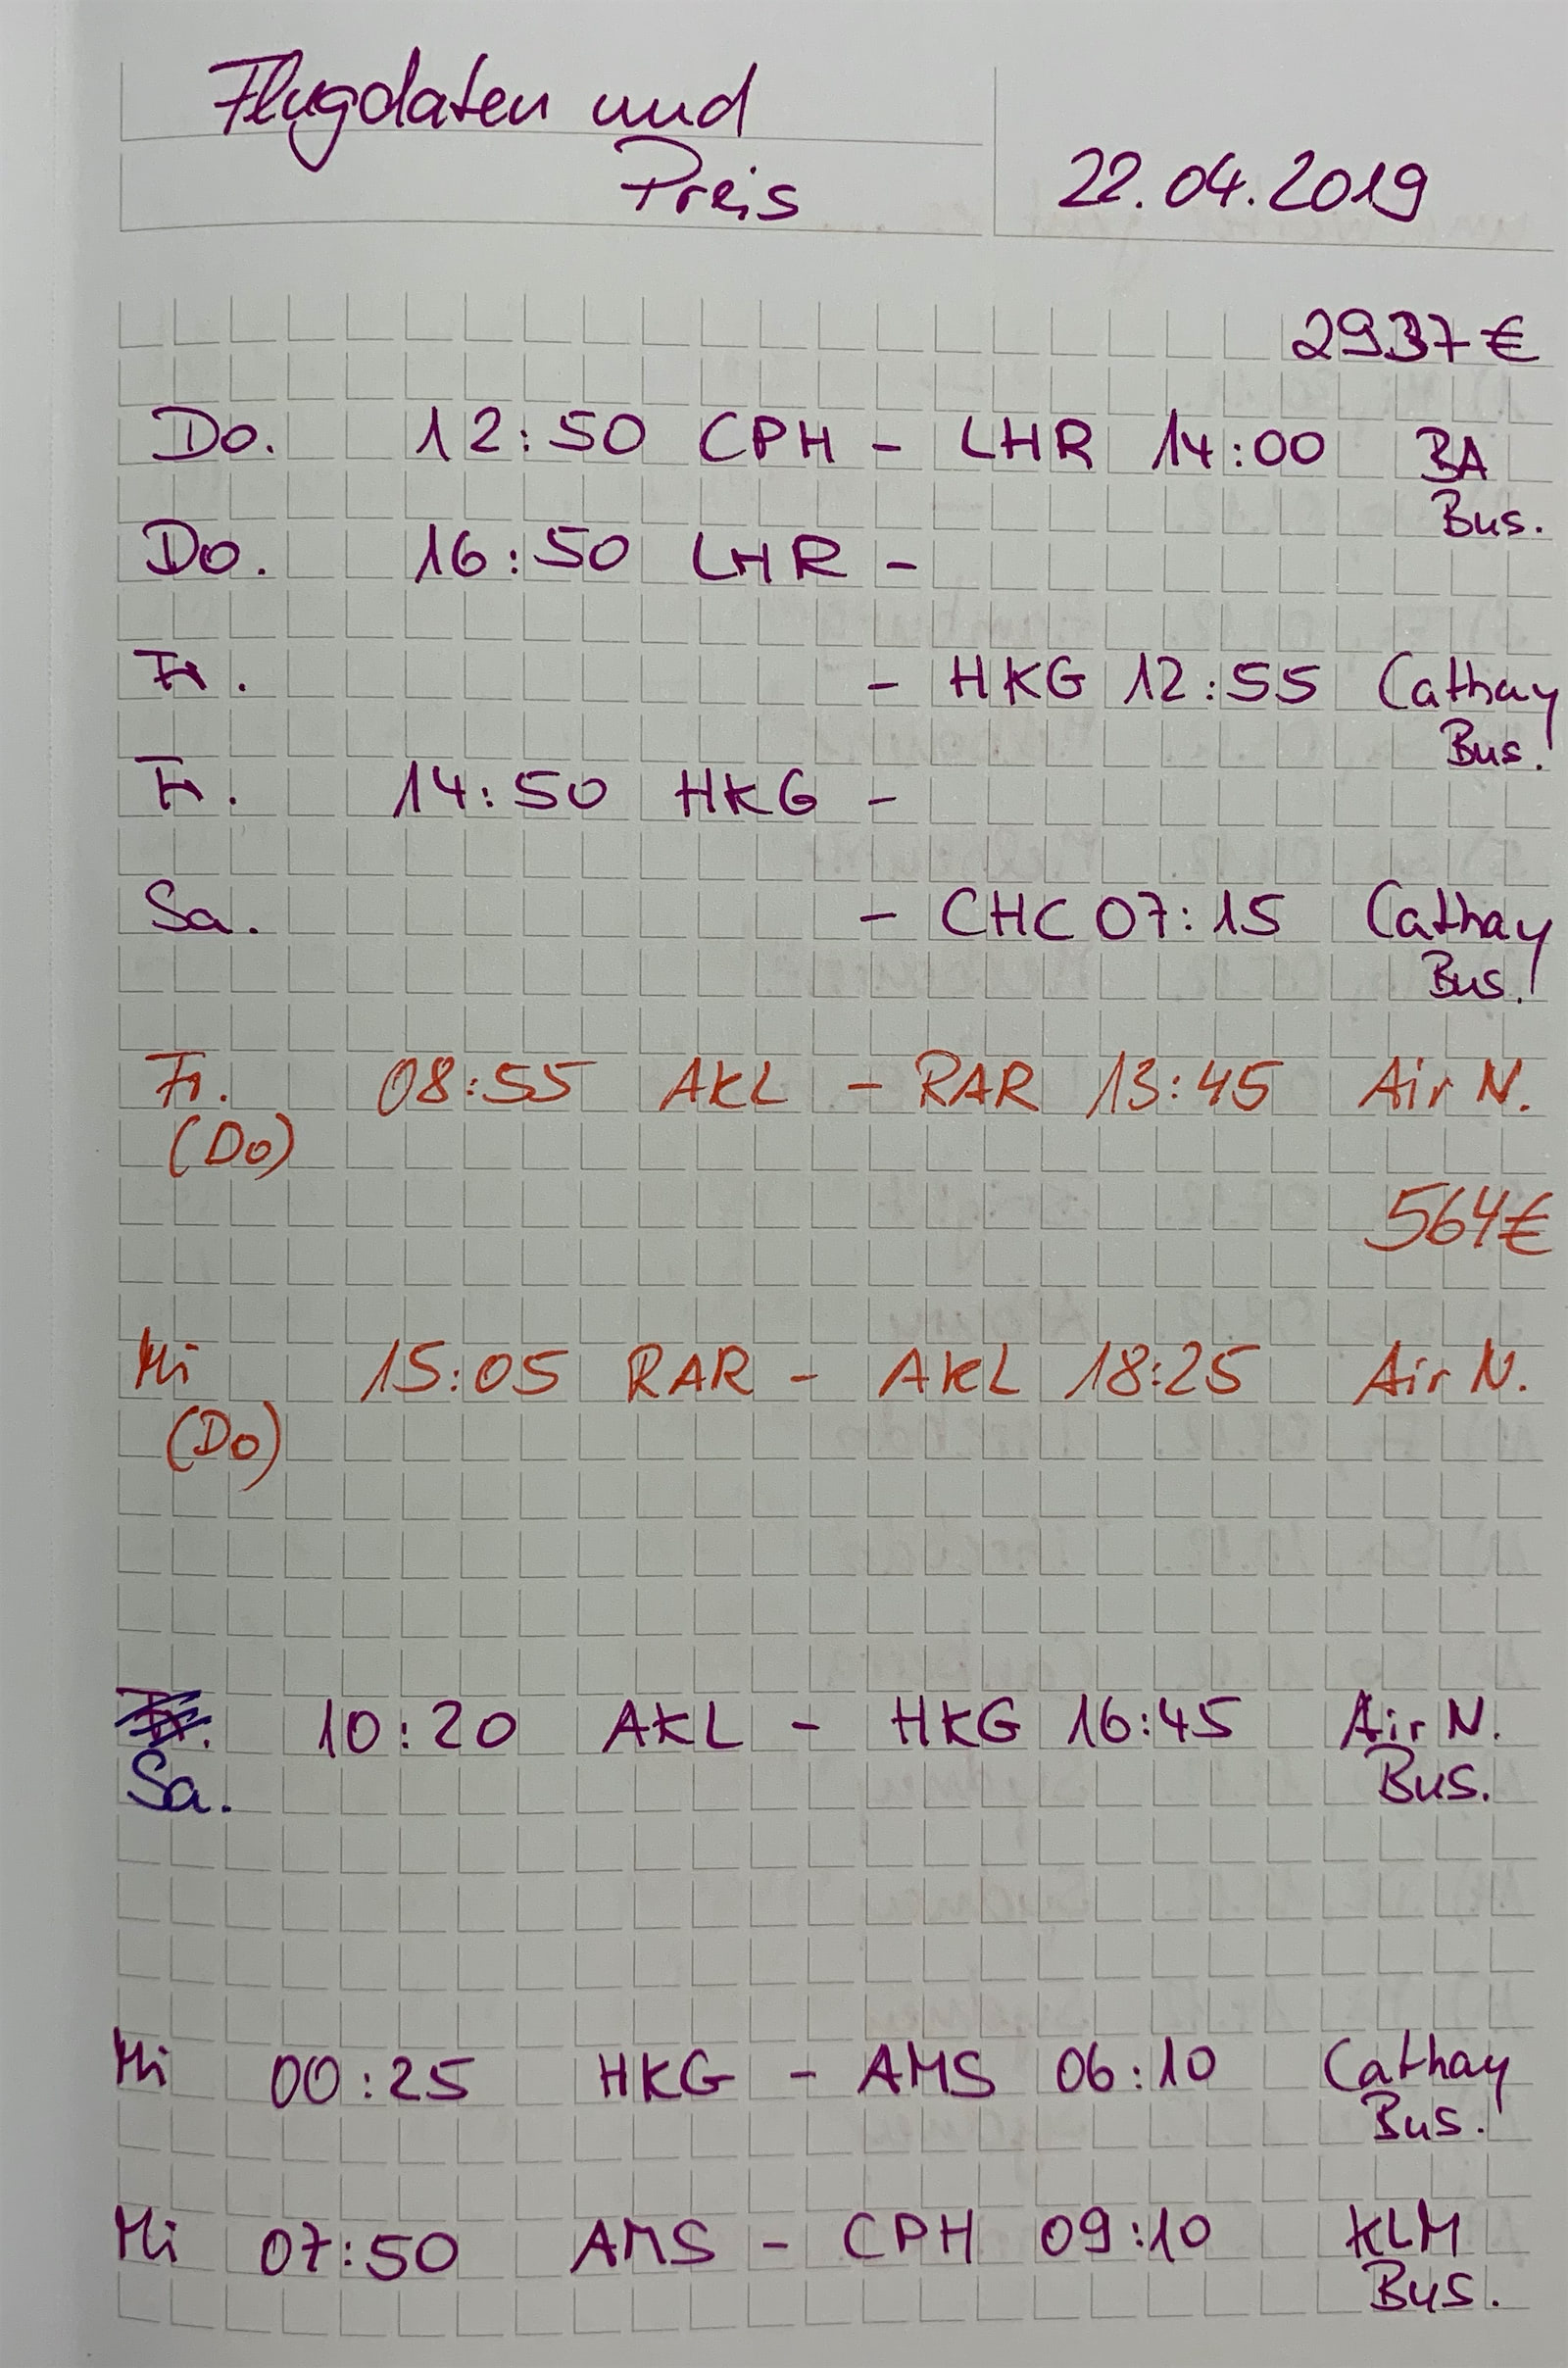 Flugdaten und
Preis
22.04.2019
2937€
Do. 12:50 CPH - LHR 14:00 BA
Bus.
Do. 16:50 LHR -
Fr. - HKG 12:55 Cathay
Bus.
Fr. 14:50 HKG -
Sa. - CHC 07:15 Cathay
Bus.
Fr. 08:55 AKL - RAR 13:45 Air N.
(Do)
564€
Mi 15:05 RAR - AKL 18:25 Air N.
(Do)
Fr. 10:20 AKL - HKG 16:45 Air N.
Sa. Bus.
Mi 00:25 HKG - AMS 06:10 Cathay
Bus.
Mi 07:50 AMS - CPH 09:10 KLM
Bus.